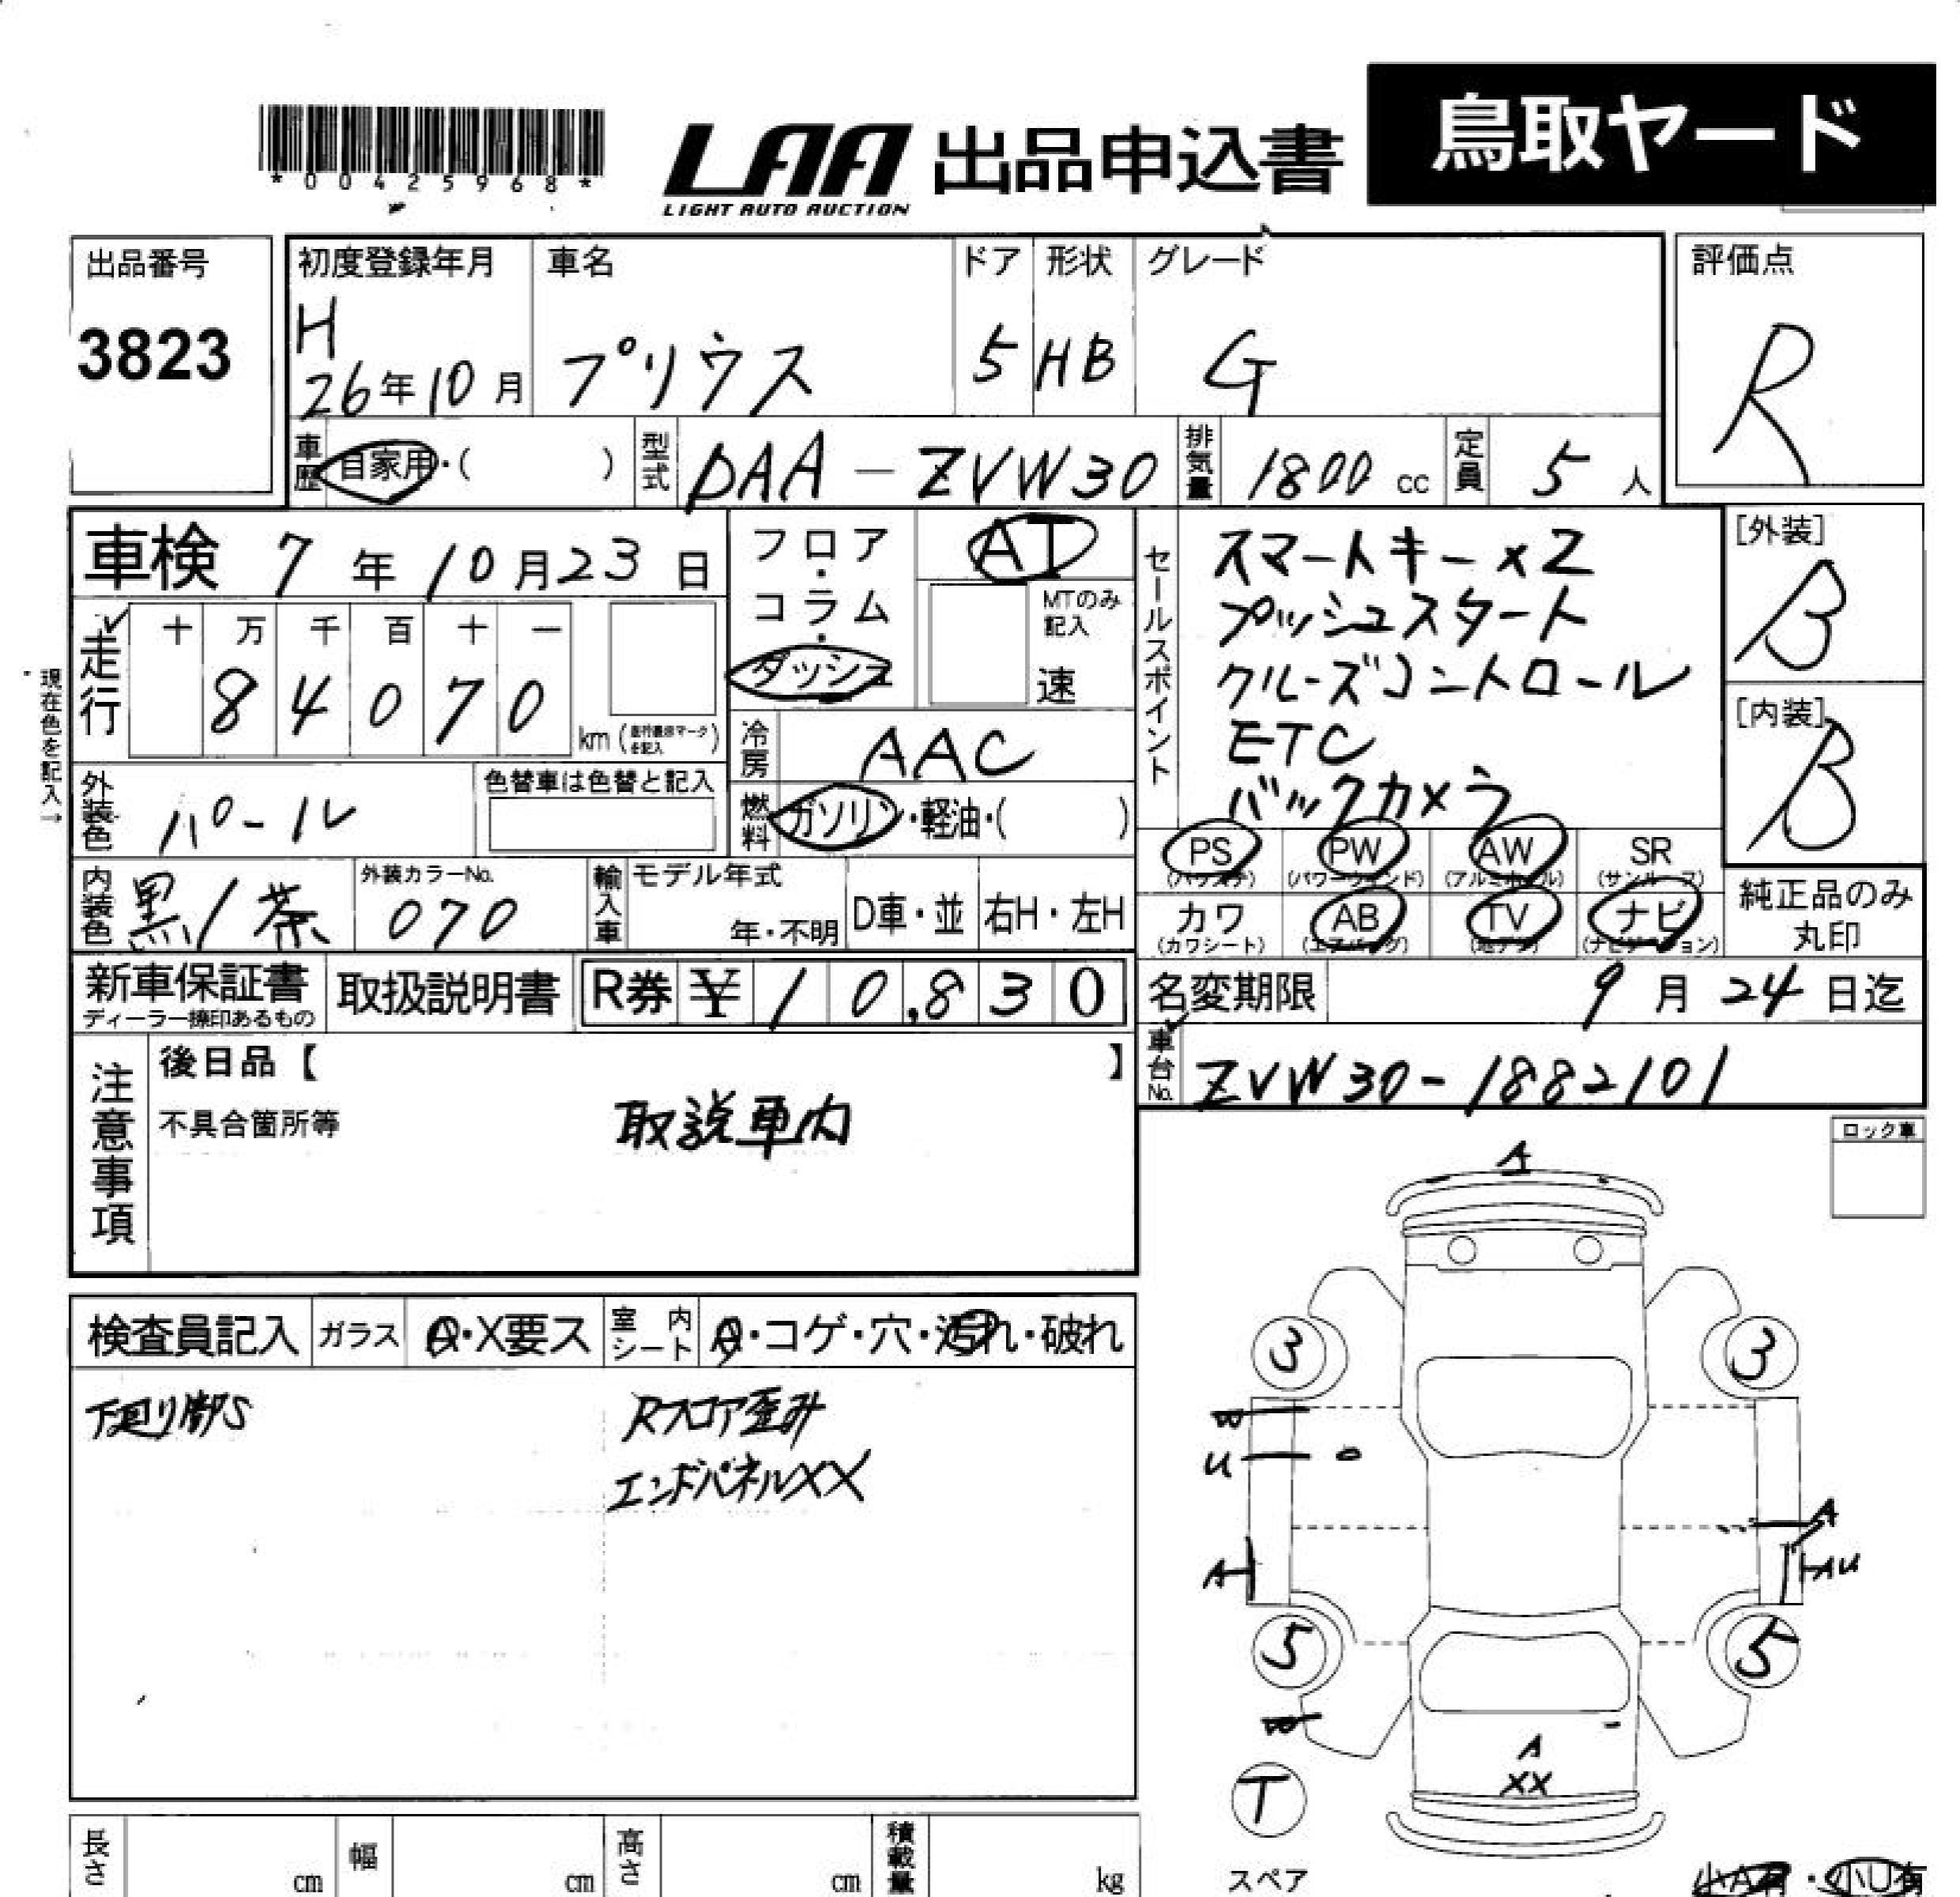 *00425968*
LAA 出品申込書 鳥取ヤード
LIGHT AUTO AUCTION
出品番号
3823
初度登録年月
H
26年10月
車名
プリウス
ドア
5
形状
HB
グレード
G
評価点
R
車歴 自家用・( )
型式 DAA-ZVW30
排気量 1800 cc
定員 5 人
車検 7年10月23日
フロア・コラム・ダッシュ
AT
MTのみ記入
速
セールスポイント
スマートキー×2
プッシュスタート
クルーズコントロール
ETC
バックカメラ
[外装]
B
[内装]
B
現在色を記入→
走行
十 万 千 百 十 一
8 4 0 7 0
km
冷房 AAC
外装色 パール
色替車は色替と記入
燃料 ガソリン・軽油・( )
PS PW AW SR
(パワステ) (パワーウィンド) (アルミホイル) (サンルーフ)
カワ AB TV ナビ
(カワシート) (エアバッグ) (地デジ) (ナビゲーション)
純正品のみ
丸印
内装色 黒/茶
外装カラーNo.
070
輸入車
モデル年式
年・不明
D車・並
右H・左H
新車保証書
ディーラー捺印あるもの
取扱説明書
R券 ¥ 10,830
名変期限 9月24日迄
車台No. ZVW30-1882101
注意事項
後日品【 】
不具合箇所等
取説車内
ロック車
検査員記入 ガラス A・X要ス 室内シート A・コゲ・穴・汚れ・破れ
下廻り錆S
Rフロア歪み
エンドパネルXX
A
3 3
W
U
A
A
AU
5 5
W
A
XX
T
スペア
小A有・小U有
長さ cm
幅 cm
高さ cm
積載量 kg